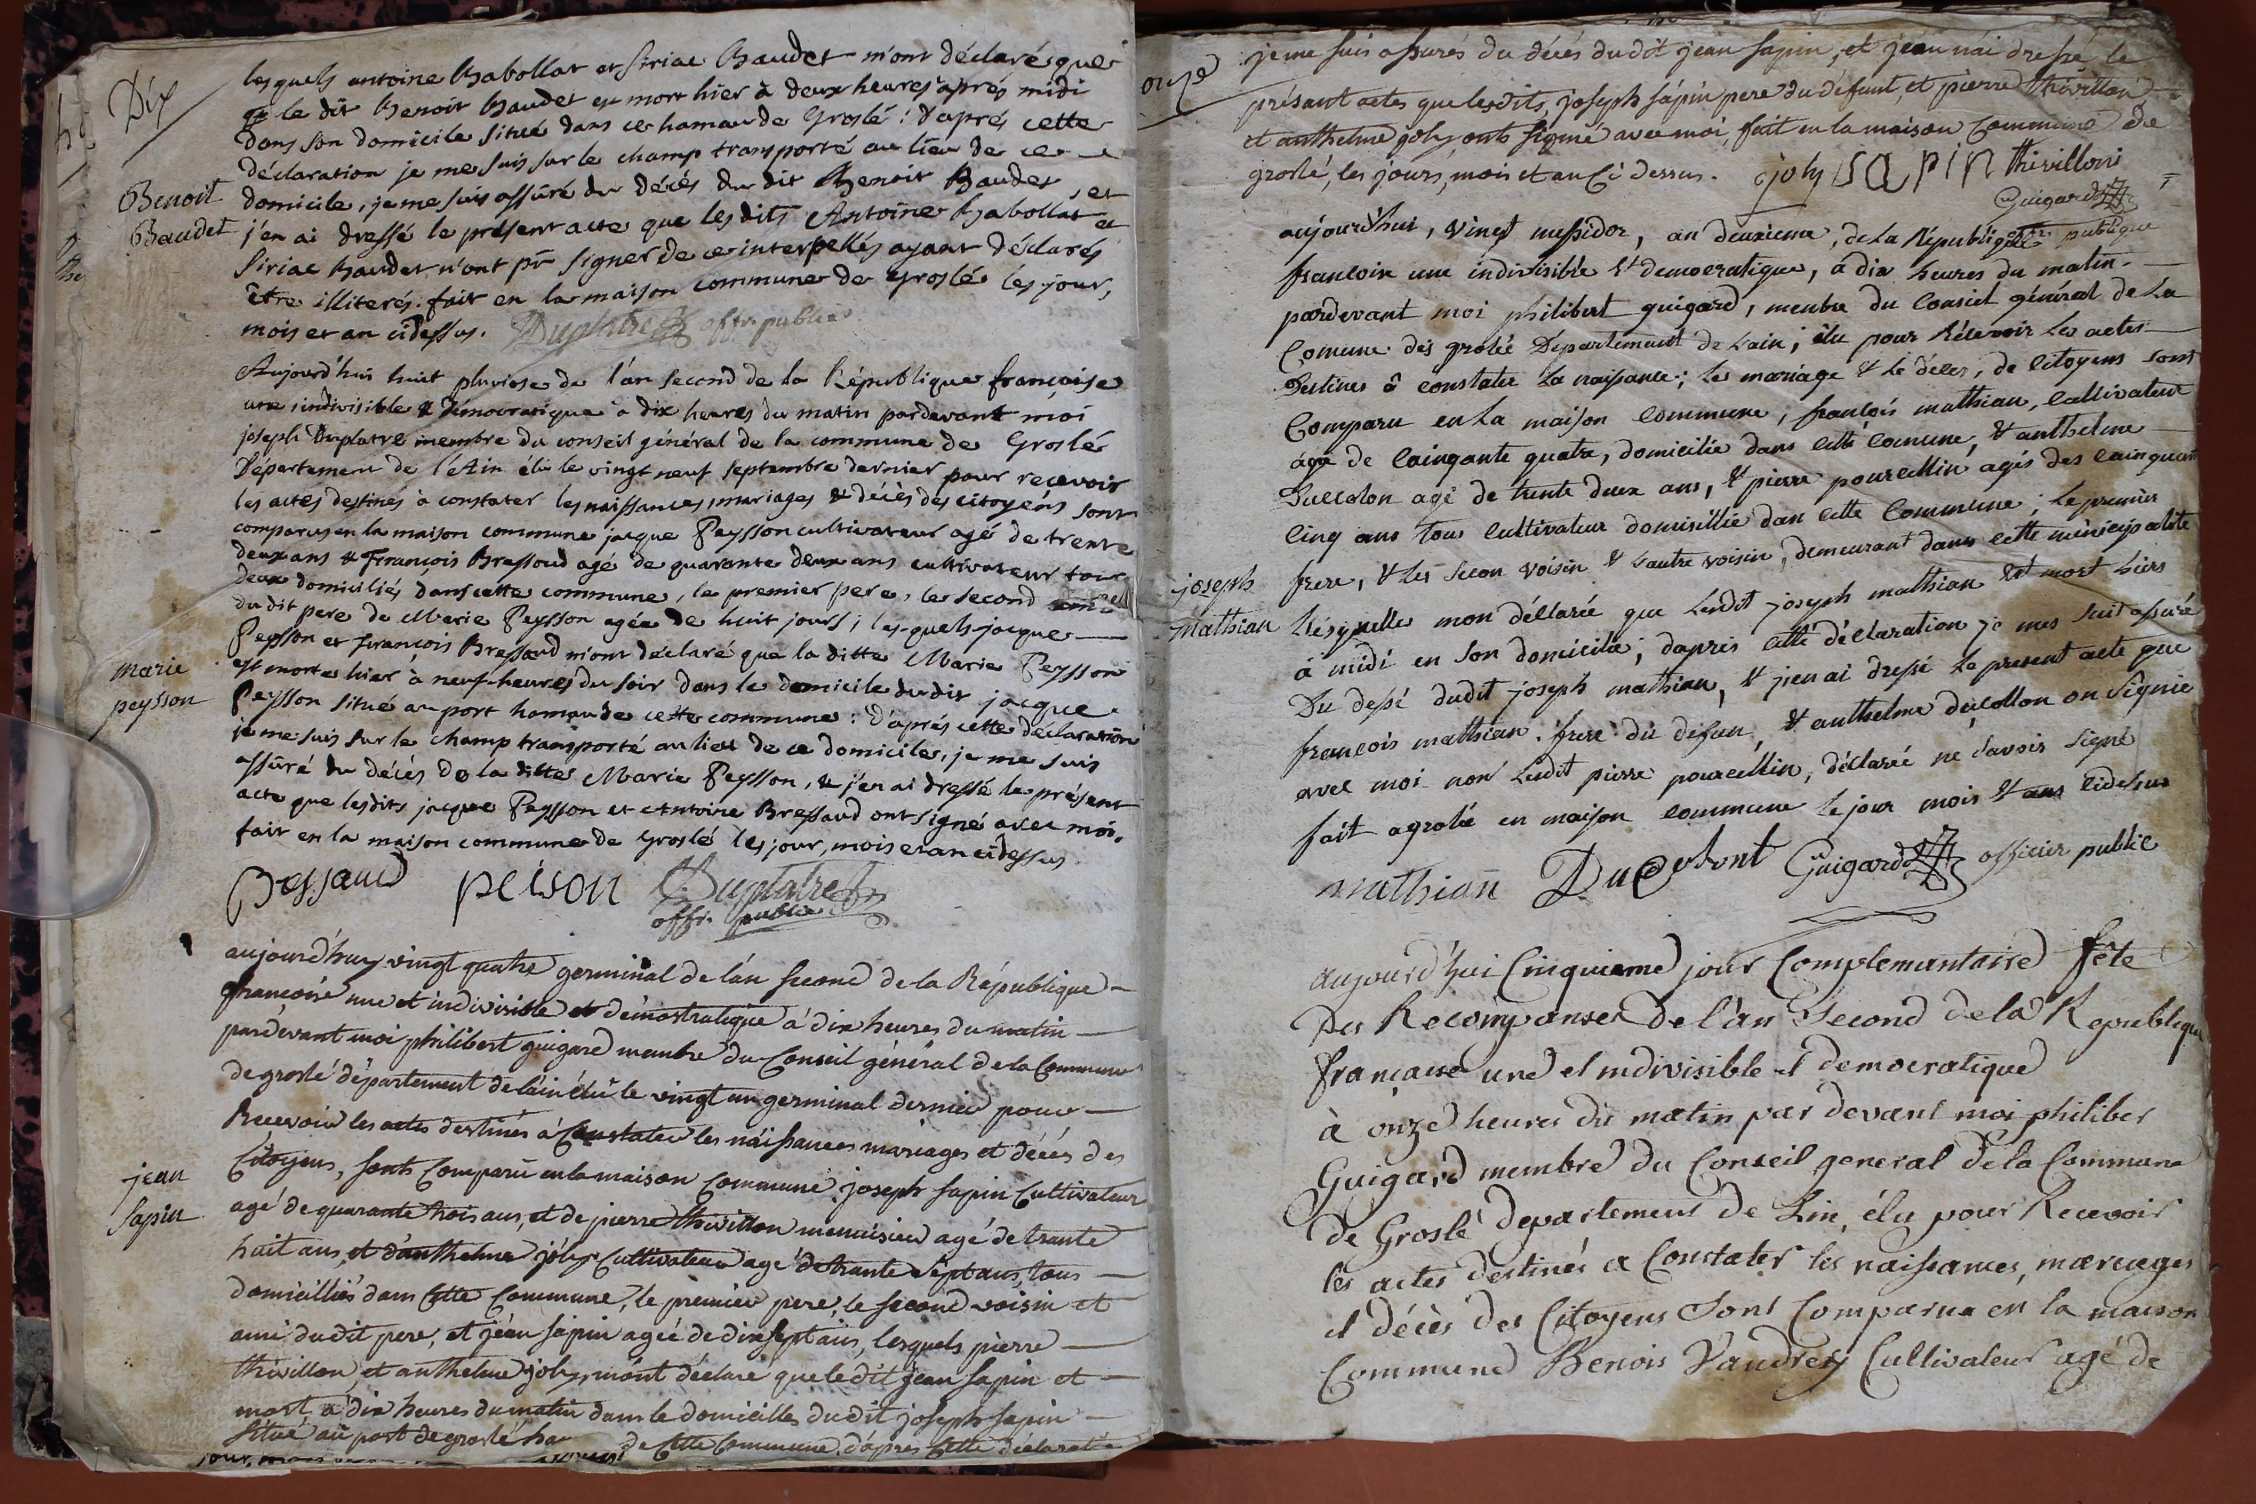 Dix
lesquels antoine Babollat et Siriac Baudet m'ont déclaré que
le dit Benoit Baudet est mort hier à deux heures après midi
dans son domicile situé dans ce hamau de Groslé : d'après cette
déclaration je me suis sur le champ transporté au lieu de ce
Benoit
Baudet
domicile, je me suis assûré du décés du dit Benoit Baudet, et
j'en ai dressé le présent acte que les dits Antoine Babollat et
Siriac Baudet n'ont pû signer de ce interpellés ayant déclarés
être illiterés. fait en la maison commune de Groslé les jour,
mois et an cidessus. Duplatre offr. public
Aujourd'hui huit pluviose de l'an second de la République française
une, indivisible & démocratique à dix heures du matin pardevant moi
joseph Duplatre membre du conseil général de la commune de Groslé
Département de l'Ain élu le vingt neuf septembre dernier pour recevoir
les actes destinés à constater les naissances, mariages & décès des citoyens sont
comparus en la maison commune jacque Peysson cultivateur agé de trente
deux ans & François Bressoud agé de quarante deux ans cultivateur tous
deux domiciliés dans cette commune, le premier pere, le second
du dit pere de Marie Peysson agée de huit jours ; les-quels jacque
Peysson et François Bressoud m'ont déclaré que la ditte Marie Peysson
marie
peysson
est morte hier à neuf-heures du soir dans le domicile du dit jacque
Peysson situé au port hamau de cette commune : d'après cette déclaration
je me suis sur le champ transporté au lieu de ce domicile, je me suis
assûré du décès de la ditte Marie Peysson, & j'en ai dressé le présent
acte que lesdits jacque Peysson et Antoine Bressaud ont signé avec moi.
fait en la maison commune de Groslé les jour, mois et an cidessus.
Bessaud peison Duplatre
offr. public
aujourd'huy vingt quatre germinal de l'an second de la République
francoise une et indivisible et démostratique à dix heures du matin
pardevant moi philibert guigard membre du Conseil général de la Commune
de groslé département de l'ain élu le vingt un germinal dernier pour
Recevoir les actes destinés à Constater les naissances mariages et décés des
jean
Sapin
Citoyens, sont Comparu en la maison Commune joseph Sapin Cultivateur
agé de quarante trois ans, et de pierre thivillon menuisier agé de trante
huit ans, et d'anthelme joly Cultivateur agé de trante sept ans, tous
domicilliés dans Cette Commune, le premier pere, le second voisin et
ami dudit pere, et jean Sapin ageé de dix sept ans, lesquels pierre
thivillon et anthelme joly, m'ont déclaré que le dit jean Sapin et
mort à dix heures du matin dans le domicille dudit joseph Sapin
Situé au port de groslé de Cette Commune d'après Cette déclaration
onze
je me suis assurés du décés dudit jean Sapin, et jean nai dressé le
présant actes que lesdits, joseph sapin pere du défunt, et pierre thivillon
et anthelme joly onts signié avec moi, fait en la maison Commune de
groslé, les jours, mois et an Ci dessus. joly sapin thivillon
Guigard
offr publique
aujourd'hui, vingt messidor, an deuxieme, de La République
francoise une indivisible & democratique, à dix heures du matin
pardevant moi philibert guigard, menbre du Consiel général de La
Comune des grolée Département de L'ain ; élu pour Récevoir Les actes
Destinés à constater La naissance ; Le mariage & Le décer, de Citoyens sont
Comparu en La maison Commune, francois mathian, Cultivateur
age de Cainqante quatre, domicilié dans cette comune, & anthelme
Duccolon agé de trente deux ans, & pierre pourcellin agés des cainquante
cinq ans tous cultivateur domisillié dan cette Commune ; Le premier
joseph
Mathian
frere, & Les secon voisin & L'autre voisin, demeurant dans cette municipalité
Lésquelle mon déClarée que Lendit joseph mathian est mort hiers
à midi en Son domicilié ; dapris cette déClaration je mes suit assuré
Du dessé dudit joseph mathian, & j'ien ai dressé Le present acte que
francois mathian. frere du défun, & anthelme ducollon on Signie
avec moi non Lendit pierre pourcellin, déClareé ne savoir signé
fait a grolée en maison commune Le jour mois & ans Cidesus
mathian Ducolont Guigard officier public
aujourd'hui Cinquieme jour Complementaire fête
Des Recompanses De l'an Second de la Republique
française une et indivisible et democratique
à onze heures du matin par devant moi philiber
Guigard membre du Conseil general de la Commune
de Groslé departement de Lin, élu pour Recevoir
les actes destinés a Constater les naissances, mariages
et décès des Citoyens Sont Comparus en la maison
Commune Benois Vaudrey Cultivateur agé de